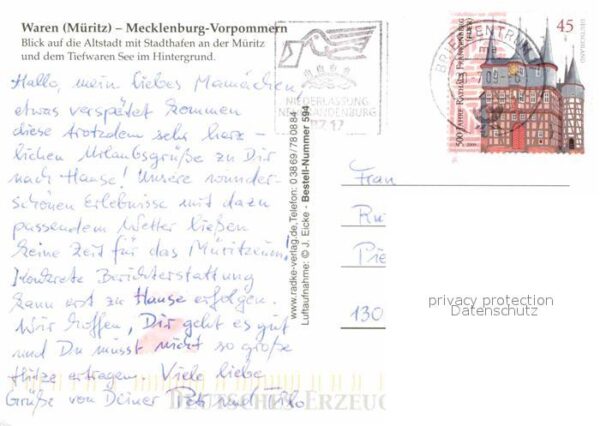 Waren (Müritz) – Mecklenburg-Vorpommern
Blick auf die Altstadt mit Stadthafen an der Müritz
und dem Tiefwaren See im Hintergrund.
Hallo, mein liebes Mamachen,
etwas verspätet kommen
diese trotzdem sehr herz-
lichen Urlaubsgrüße zu Dir
nach Hause! Unsere wunder-
schönen Erlebnisse mit dazu
passendem Wetter ließen
keine Zeit für das Müritzeum!
Konkrete Berichterstattung
kann erst zu Hause erfolgen.
Wir hoffen, Dir geht es gut
und Du musst nicht so große
Hitze ertragen. Viele liebe
Grüße von Deiner Petr und
DEUTSCHES ERZEUG
www.radke-verlag.de, Telefon: 0 38 69 / 78 08 84
Luftaufnahme: © J. Eicke · Bestell-Nummer 594
NIEDERLASSUNG
NEUBRANDENBURG
BRIEFZENTRUM
45
DEUTSCHLAND
500 Jahre Rathaus Frankenberg (Eder)
Frau
130
privacy protection
Datenschutz